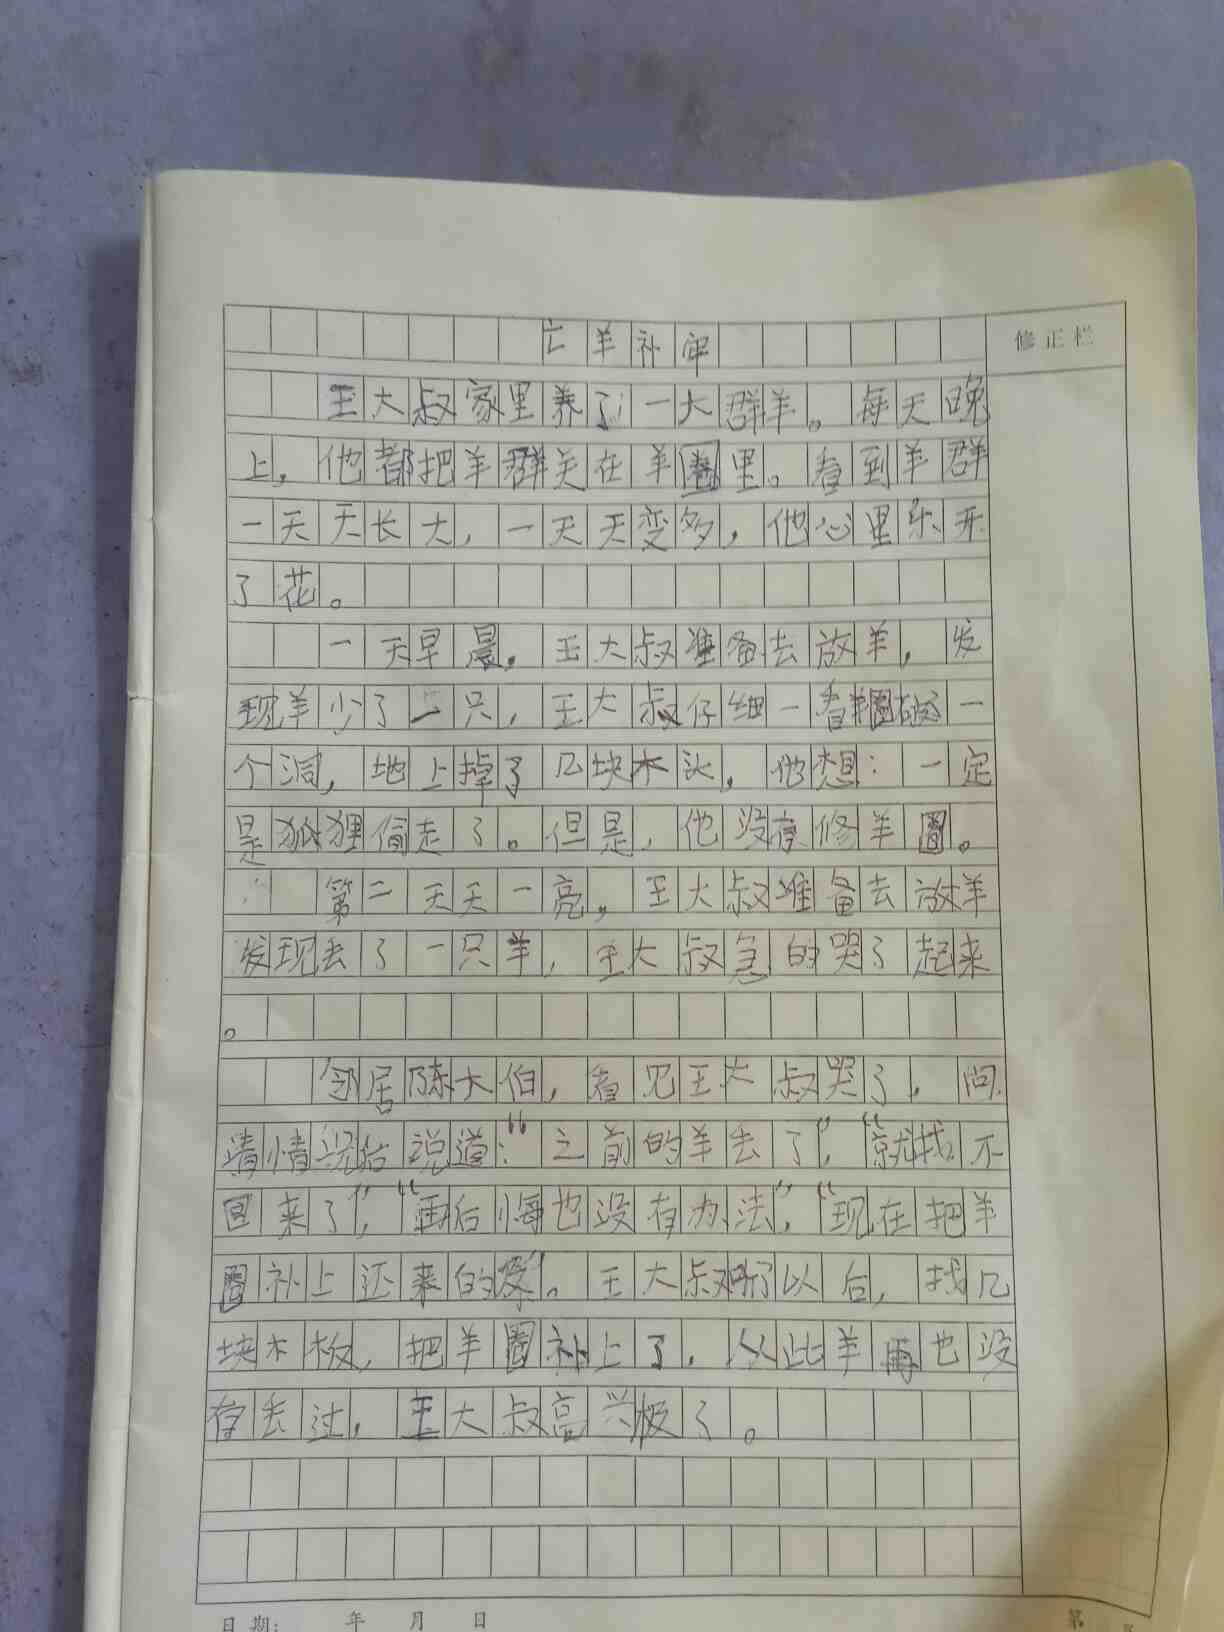 亡羊补牢
修正栏
王大叔家里养了一大群羊。每天晚
上，他都把羊群关在羊圈里。看到羊群
一天天长大，一天天变多，他心里乐开
了花。
一天早晨，王大叔准备去放羊，发
现羊少了一只，王大叔仔细一看羊圈破了一
个洞，地上掉了几块木头，他想：一定
是狐狸偷走了。但是，他没有修羊圈。
第二天天一亮，王大叔准备去放羊
发现丢了一只羊，王大叔急的哭了起来
。
邻居陈大伯，看见王大叔哭了，问
清情况后说道：“之前的羊丢了”，“就找不
回来了”，“再后悔也没有办法”，“现在把羊
圈补上还来的及”。王大叔听了以后，找几
块木板，把羊圈补上了，从此羊再也没
有丢过，王大叔高兴极了。
日期： 年 月 日 第 页